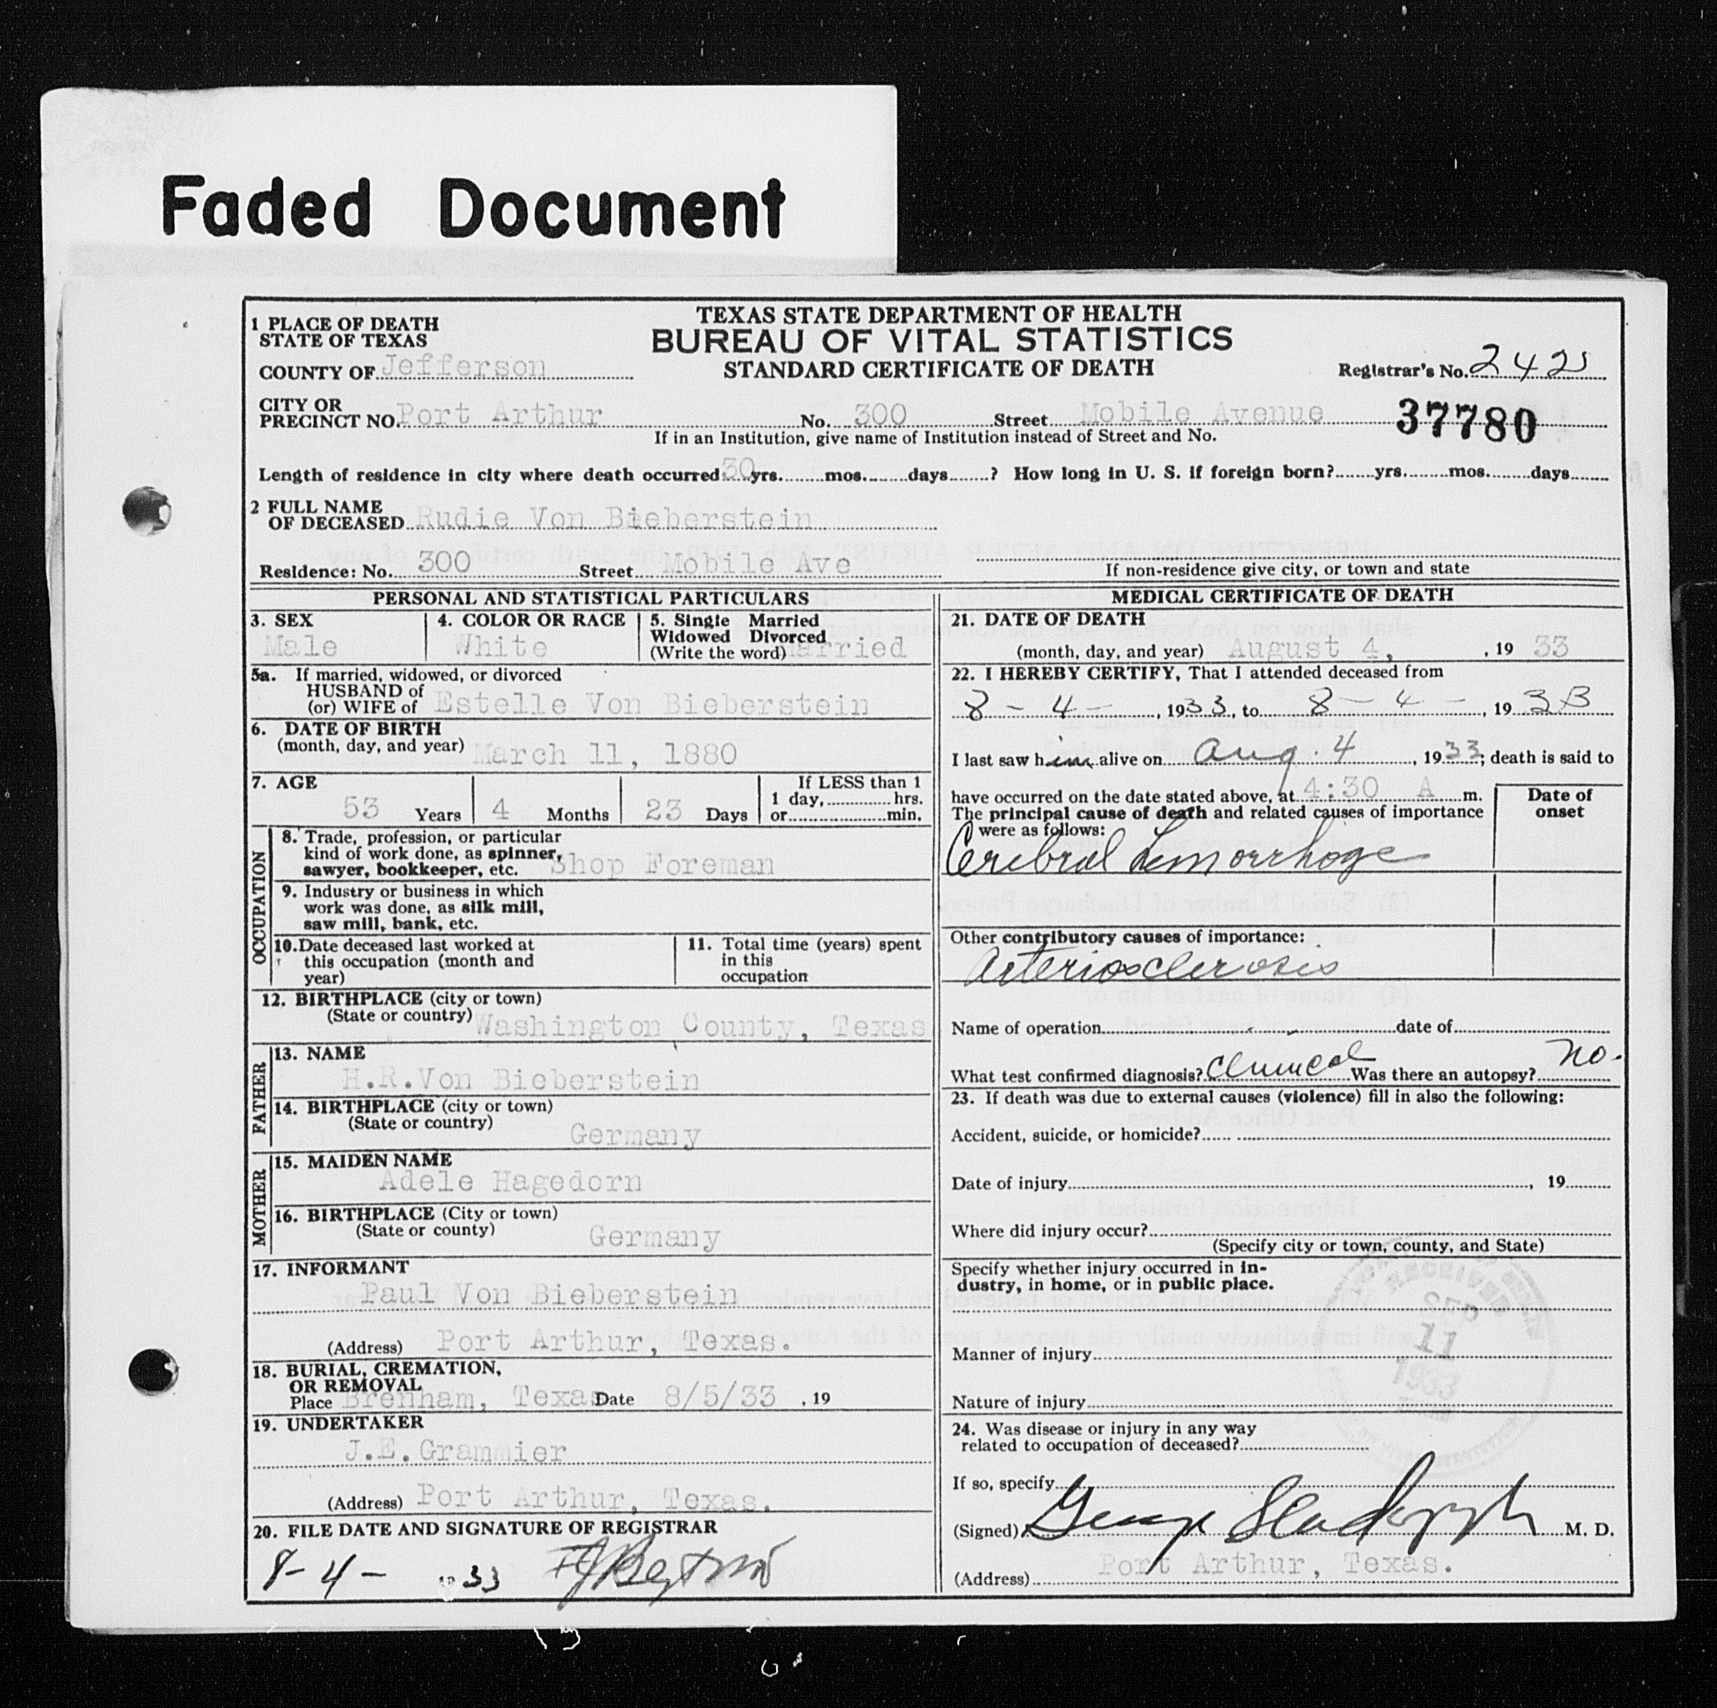 Faded Document
TEXAS STATE DEPARTMENT OF HEALTH
BUREAU OF VITAL STATISTICS
STANDARD CERTIFICATE OF DEATH
1 PLACE OF DEATH
STATE OF TEXAS
COUNTY OF Jefferson
Registrar's No. 242
CITY OR
PRECINCT NO. Port Arthur No. 300 Street Mobile Avenue 37780
If in an Institution, give name of Institution instead of Street and No.
Length of residence in city where death occurred 30 yrs. mos. days ? How long in U. S. if foreign born? yrs. mos. days
2 FULL NAME
OF DECEASED Rudie Von Bieberstein
Residence: No. 300 Street Mobile Ave
If non-residence give city, or town and state
PERSONAL AND STATISTICAL PARTICULARS
3. SEX 4. COLOR OR RACE 5. Single Married
Widowed Divorced
(Write the word) Married
Male White
5a. If married, widowed, or divorced
HUSBAND of
(or) WIFE of Estelle Von Bieberstein
6. DATE OF BIRTH
(month, day, and year) March 11, 1880
7. AGE If LESS than 1
53 Years 4 Months 23 Days 1 day, hrs.
or min.
OCCUPATION
8. Trade, profession, or particular
kind of work done, as spinner,
sawyer, bookkeeper, etc. Shop Foreman
9. Industry or business in which
work was done, as silk mill,
saw mill, bank, etc.
10. Date deceased last worked at
this occupation (month and
year)
11. Total time (years) spent
in this
occupation
12. BIRTHPLACE (city or town)
(State or country) Washington County, Texas
FATHER
13. NAME
H.R.Von Bieberstein
14. BIRTHPLACE (city or town)
(State or country) Germany
MOTHER
15. MAIDEN NAME
Adele Hagedorn
16. BIRTHPLACE (City or town)
(State or county) Germany
17. INFORMANT
Paul Von Bieberstein
(Address) Port Arthur, Texas.
18. BURIAL, CREMATION,
OR REMOVAL
Place Brenham, Texas Date 8/5/33 , 19
19. UNDERTAKER
J.E.Grammier
(Address) Port Arthur, Texas.
20. FILE DATE AND SIGNATURE OF REGISTRAR
8-4- 1933
MEDICAL CERTIFICATE OF DEATH
21. DATE OF DEATH
(month, day, and year) August 4, , 19 33
22. I HEREBY CERTIFY, That I attended deceased from
8-4-, 1933, to 8-4-, 1933
I last saw him alive on Aug. 4, 1933; death is said to
have occurred on the date stated above, at 4:30 A m.
The principal cause of death and related causes of importance
were as follows:
Date of
onset
Cerebral Hemorrhage
Other contributory causes of importance:
Arteriosclerosis
Name of operation date of
What test confirmed diagnosis? Clinical Was there an autopsy? no.
23. If death was due to external causes (violence) fill in also the following:
Accident, suicide, or homicide?
Date of injury , 19
Where did injury occur?
(Specify city or town, county, and State)
Specify whether injury occurred in in-
dustry, in home, or in public place.
RECEIVED
SEP
11
1933
Manner of injury
Nature of injury
24. Was disease or injury in any way
related to occupation of deceased?
If so, specify
(Signed) George M. D.
(Address) Port Arthur, Texas.